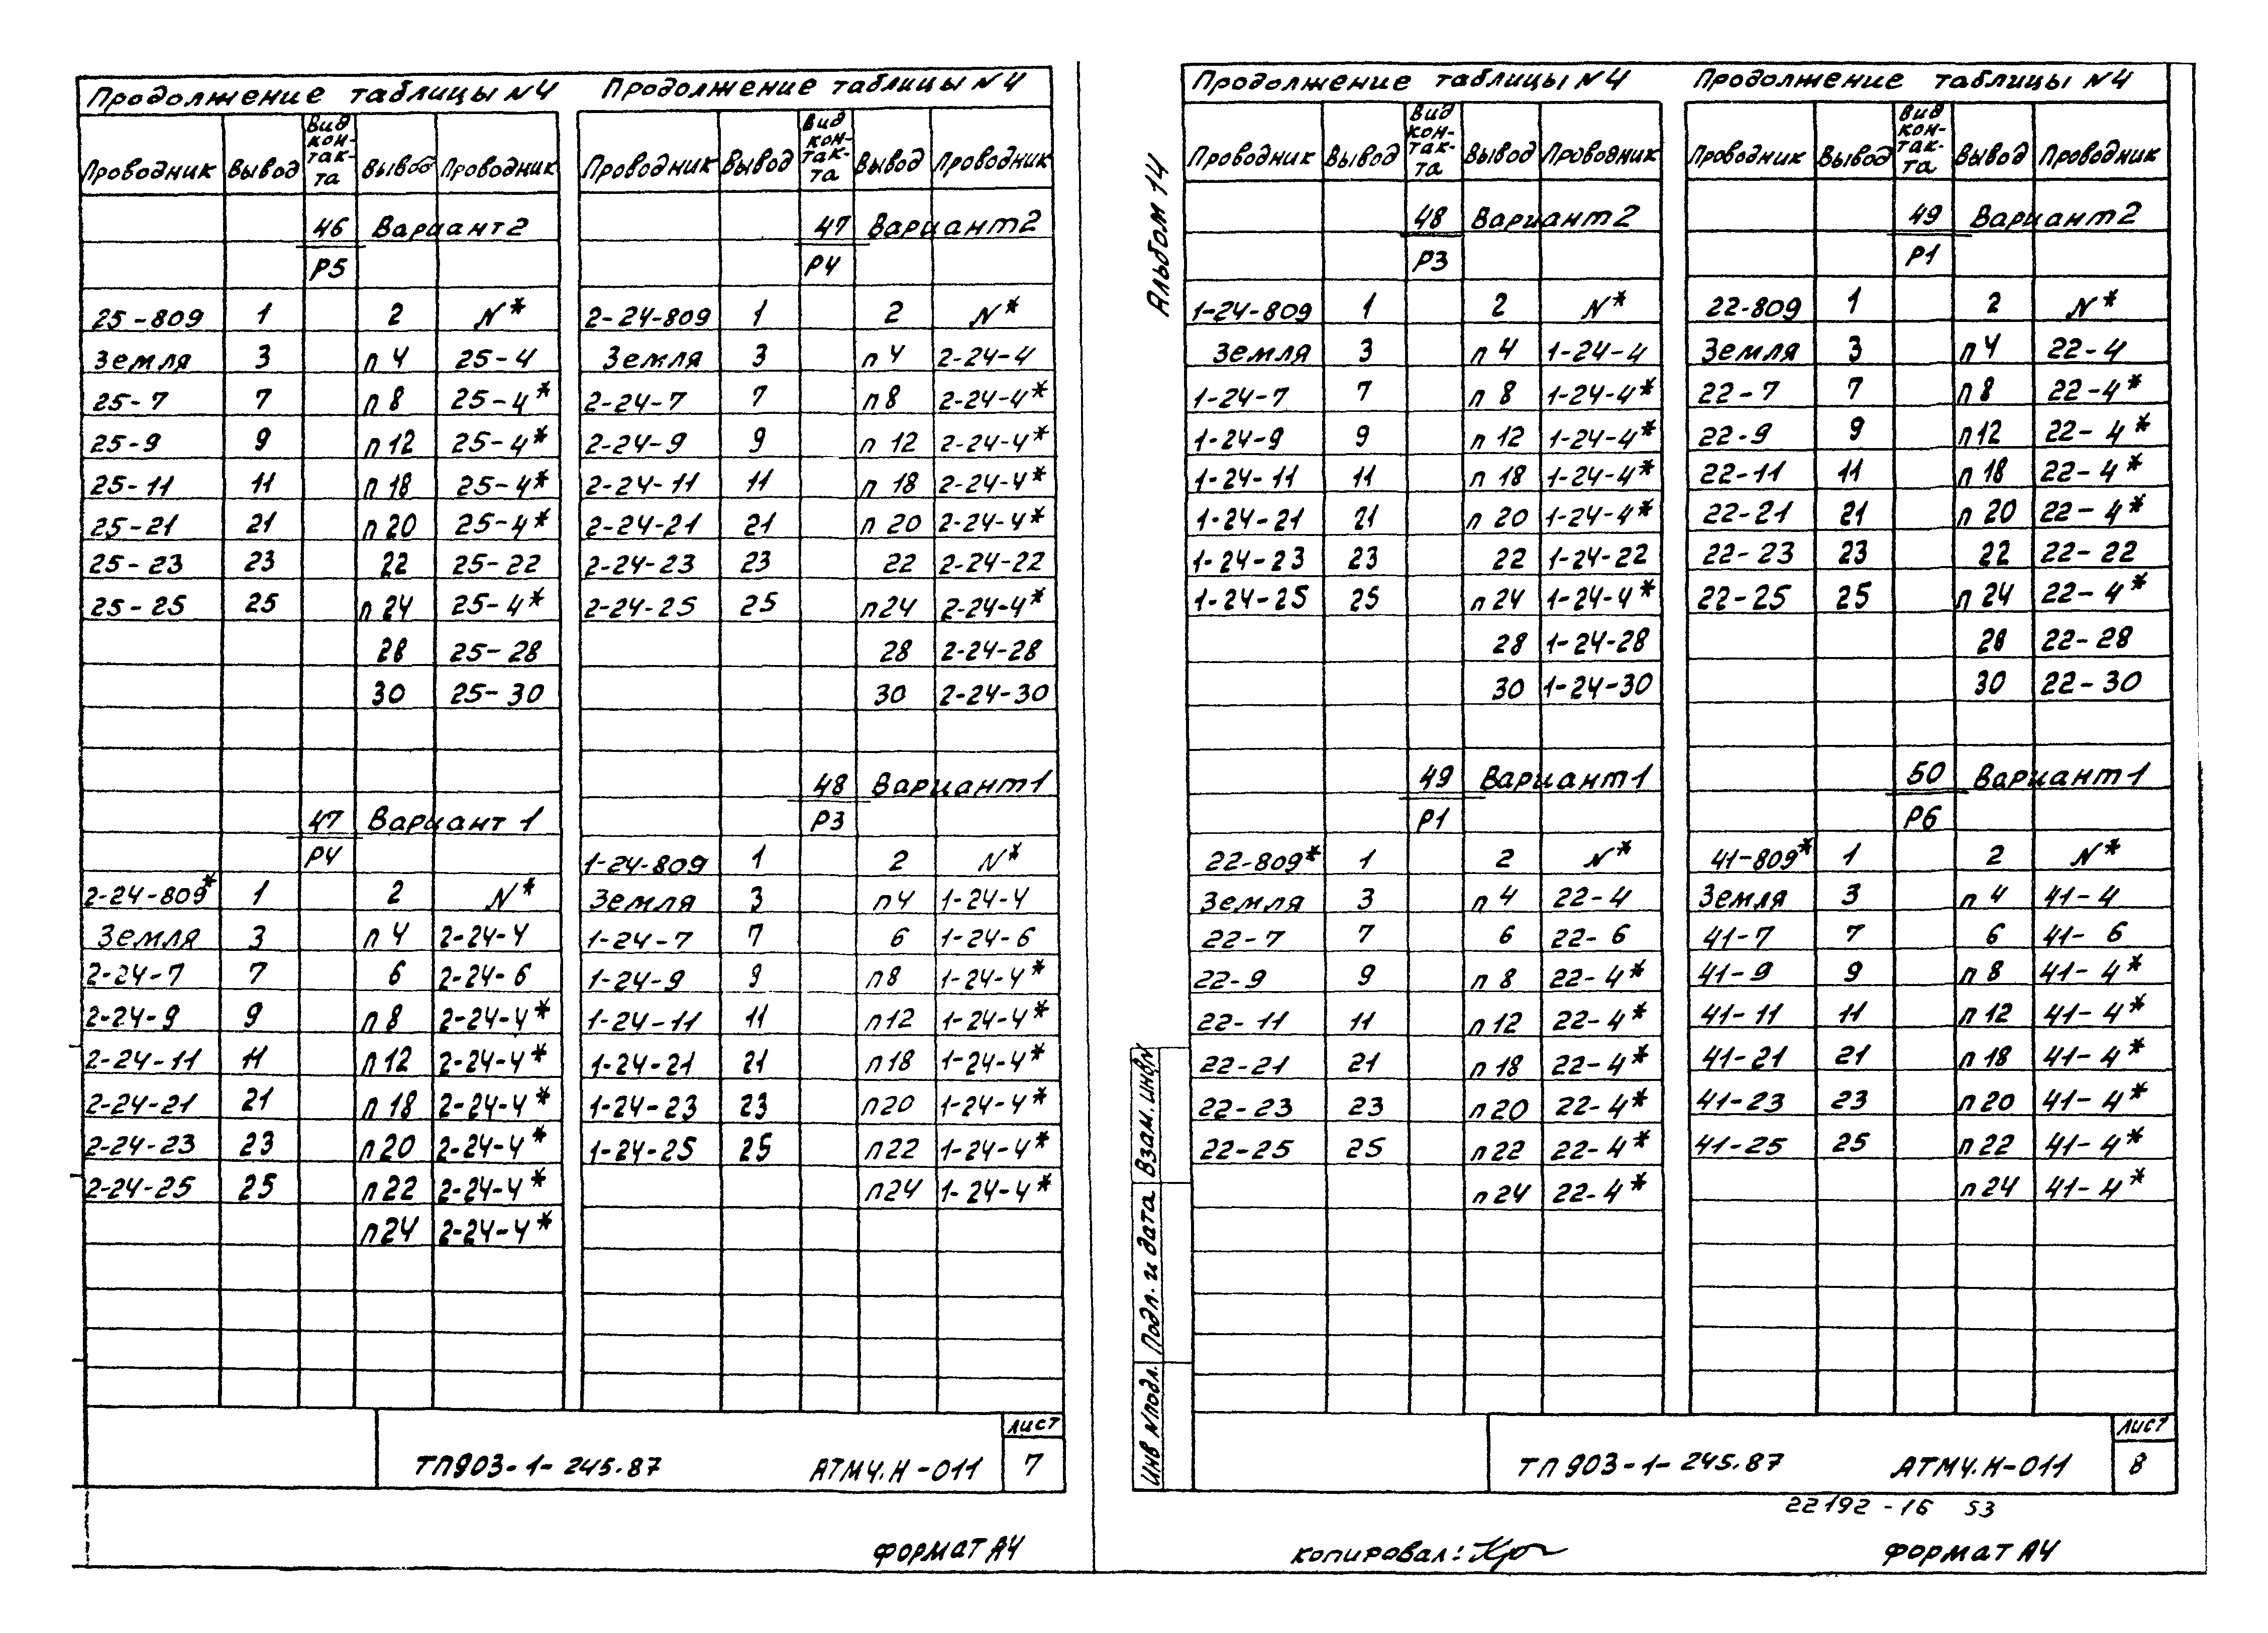 Продолжение таблицы №4
Проводник Вывод Вид кон-так-та Вывод Проводник
46 Вариант 2
Р5
25-809 1 2 N*
Земля 3 п 4 25-4
25-7 7 п 8 25-4*
25-9 9 п 12 25-4*
25-11 11 п 18 25-4*
25-21 21 п 20 25-4*
25-23 23 22 25-22
25-25 25 п 24 25-4*
28 25-28
30 25-30
47 Вариант 1
Р4
2-24-809* 1 2 N*
Земля 3 п 4 2-24-4
2-24-7 7 6 2-24-6
2-24-9 9 п 8 2-24-4*
2-24-11 11 п 12 2-24-4*
2-24-21 21 п 18 2-24-4*
2-24-23 23 п 20 2-24-4*
2-24-25 25 п 22 2-24-4*
п 24 2-24-4*
Продолжение таблицы №4
Проводник Вывод Вид кон-так-та Вывод Проводник
47 Вариант 2
Р4
2-24-809 1 2 N*
Земля 3 п 4 2-24-4
2-24-7 7 п 8 2-24-4*
2-24-9 9 п 12 2-24-4*
2-24-11 11 п 18 2-24-4*
2-24-21 21 п 20 2-24-4*
2-24-23 23 22 2-24-22
2-24-25 25 п 24 2-24-4*
28 2-24-28
30 2-24-30
48 Вариант 1
Р3
1-24-809 1 2 N*
Земля 3 п 4 1-24-4
1-24-7 7 6 1-24-6
1-24-9 9 п 8 1-24-4*
1-24-11 11 п 12 1-24-4*
1-24-21 21 п 18 1-24-4*
1-24-23 23 п 20 1-24-4*
1-24-25 25 п 22 1-24-4*
п 24 1-24-4*
ТП903-1-245.87 АТМ4.Н-011
Лист
7
Формат А4
Альбом 14
Продолжение таблицы №4
Проводник Вывод Вид кон-так-та Вывод Проводник
48 Вариант 2
Р3
1-24-809 1 2 N*
Земля 3 п 4 1-24-4
1-24-7 7 п 8 1-24-4*
1-24-9 9 п 12 1-24-4*
1-24-11 11 п 18 1-24-4*
1-24-21 21 п 20 1-24-4*
1-24-23 23 22 1-24-22
1-24-25 25 п 24 1-24-4*
28 1-24-28
30 1-24-30
49 Вариант 1
Р1
22-809* 1 2 N*
Земля 3 п 4 22-4
22-7 7 6 22-6
22-9 9 п 8 22-4*
22-11 11 п 12 22-4*
22-21 21 п 18 22-4*
22-23 23 п 20 22-4*
22-25 25 п 22 22-4*
п 24 22-4*
Продолжение таблицы №4
Проводник Вывод Вид кон-так-та Вывод Проводник
49 Вариант 2
Р1
22-809 1 2 N*
Земля 3 п 4 22-4
22-7 7 п 8 22-4*
22-9 9 п 12 22-4*
22-11 11 п 18 22-4*
22-21 21 п 20 22-4*
22-23 23 22 22-22
22-25 25 п 24 22-4*
28 22-28
30 22-30
50 Вариант 1
Р6
41-809* 1 2 N*
Земля 3 п 4 41-4
41-7 7 6 41-6
41-9 9 п 8 41-4*
41-11 11 п 12 41-4*
41-21 21 п 18 41-4*
41-23 23 п 20 41-4*
41-25 25 п 22 41-4*
п 24 41-4*
Инв №подл. Подп. и дата Взам. инв№
ТП903-1-245.87 АТМ4.Н-011
Лист
8
22192-16 53
Копировал:
Формат А4